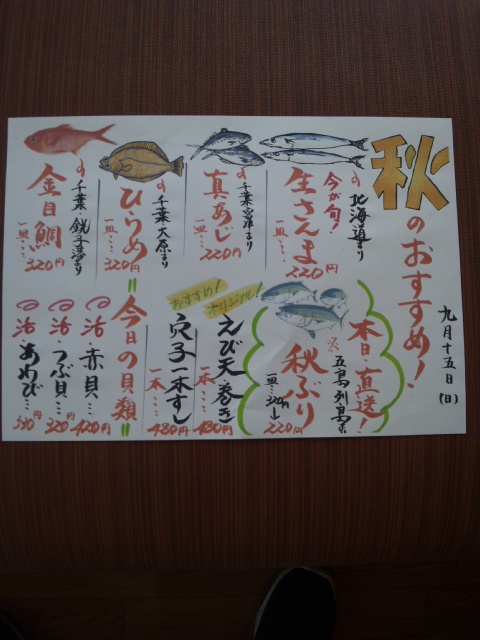 秋のおすすめ!
九月十五日(日)
北海道より
今が旬!
生さんま
一皿…220円
千葉・富津より
真あじ
一皿…220円
千葉・大原より
ひらめ
一皿…320円
千葉・銚子港より
金目鯛
一皿…320円
本日・直送!
※五島列島産
秋ぶり
一皿…320円
220円
おすすめ!オリジナル!
えび天巻き
一本…480円
穴子一本すし
一本…480円
=今日の貝類=
活・赤貝…420円
活・つぶ貝…320円
活・あわび…530円